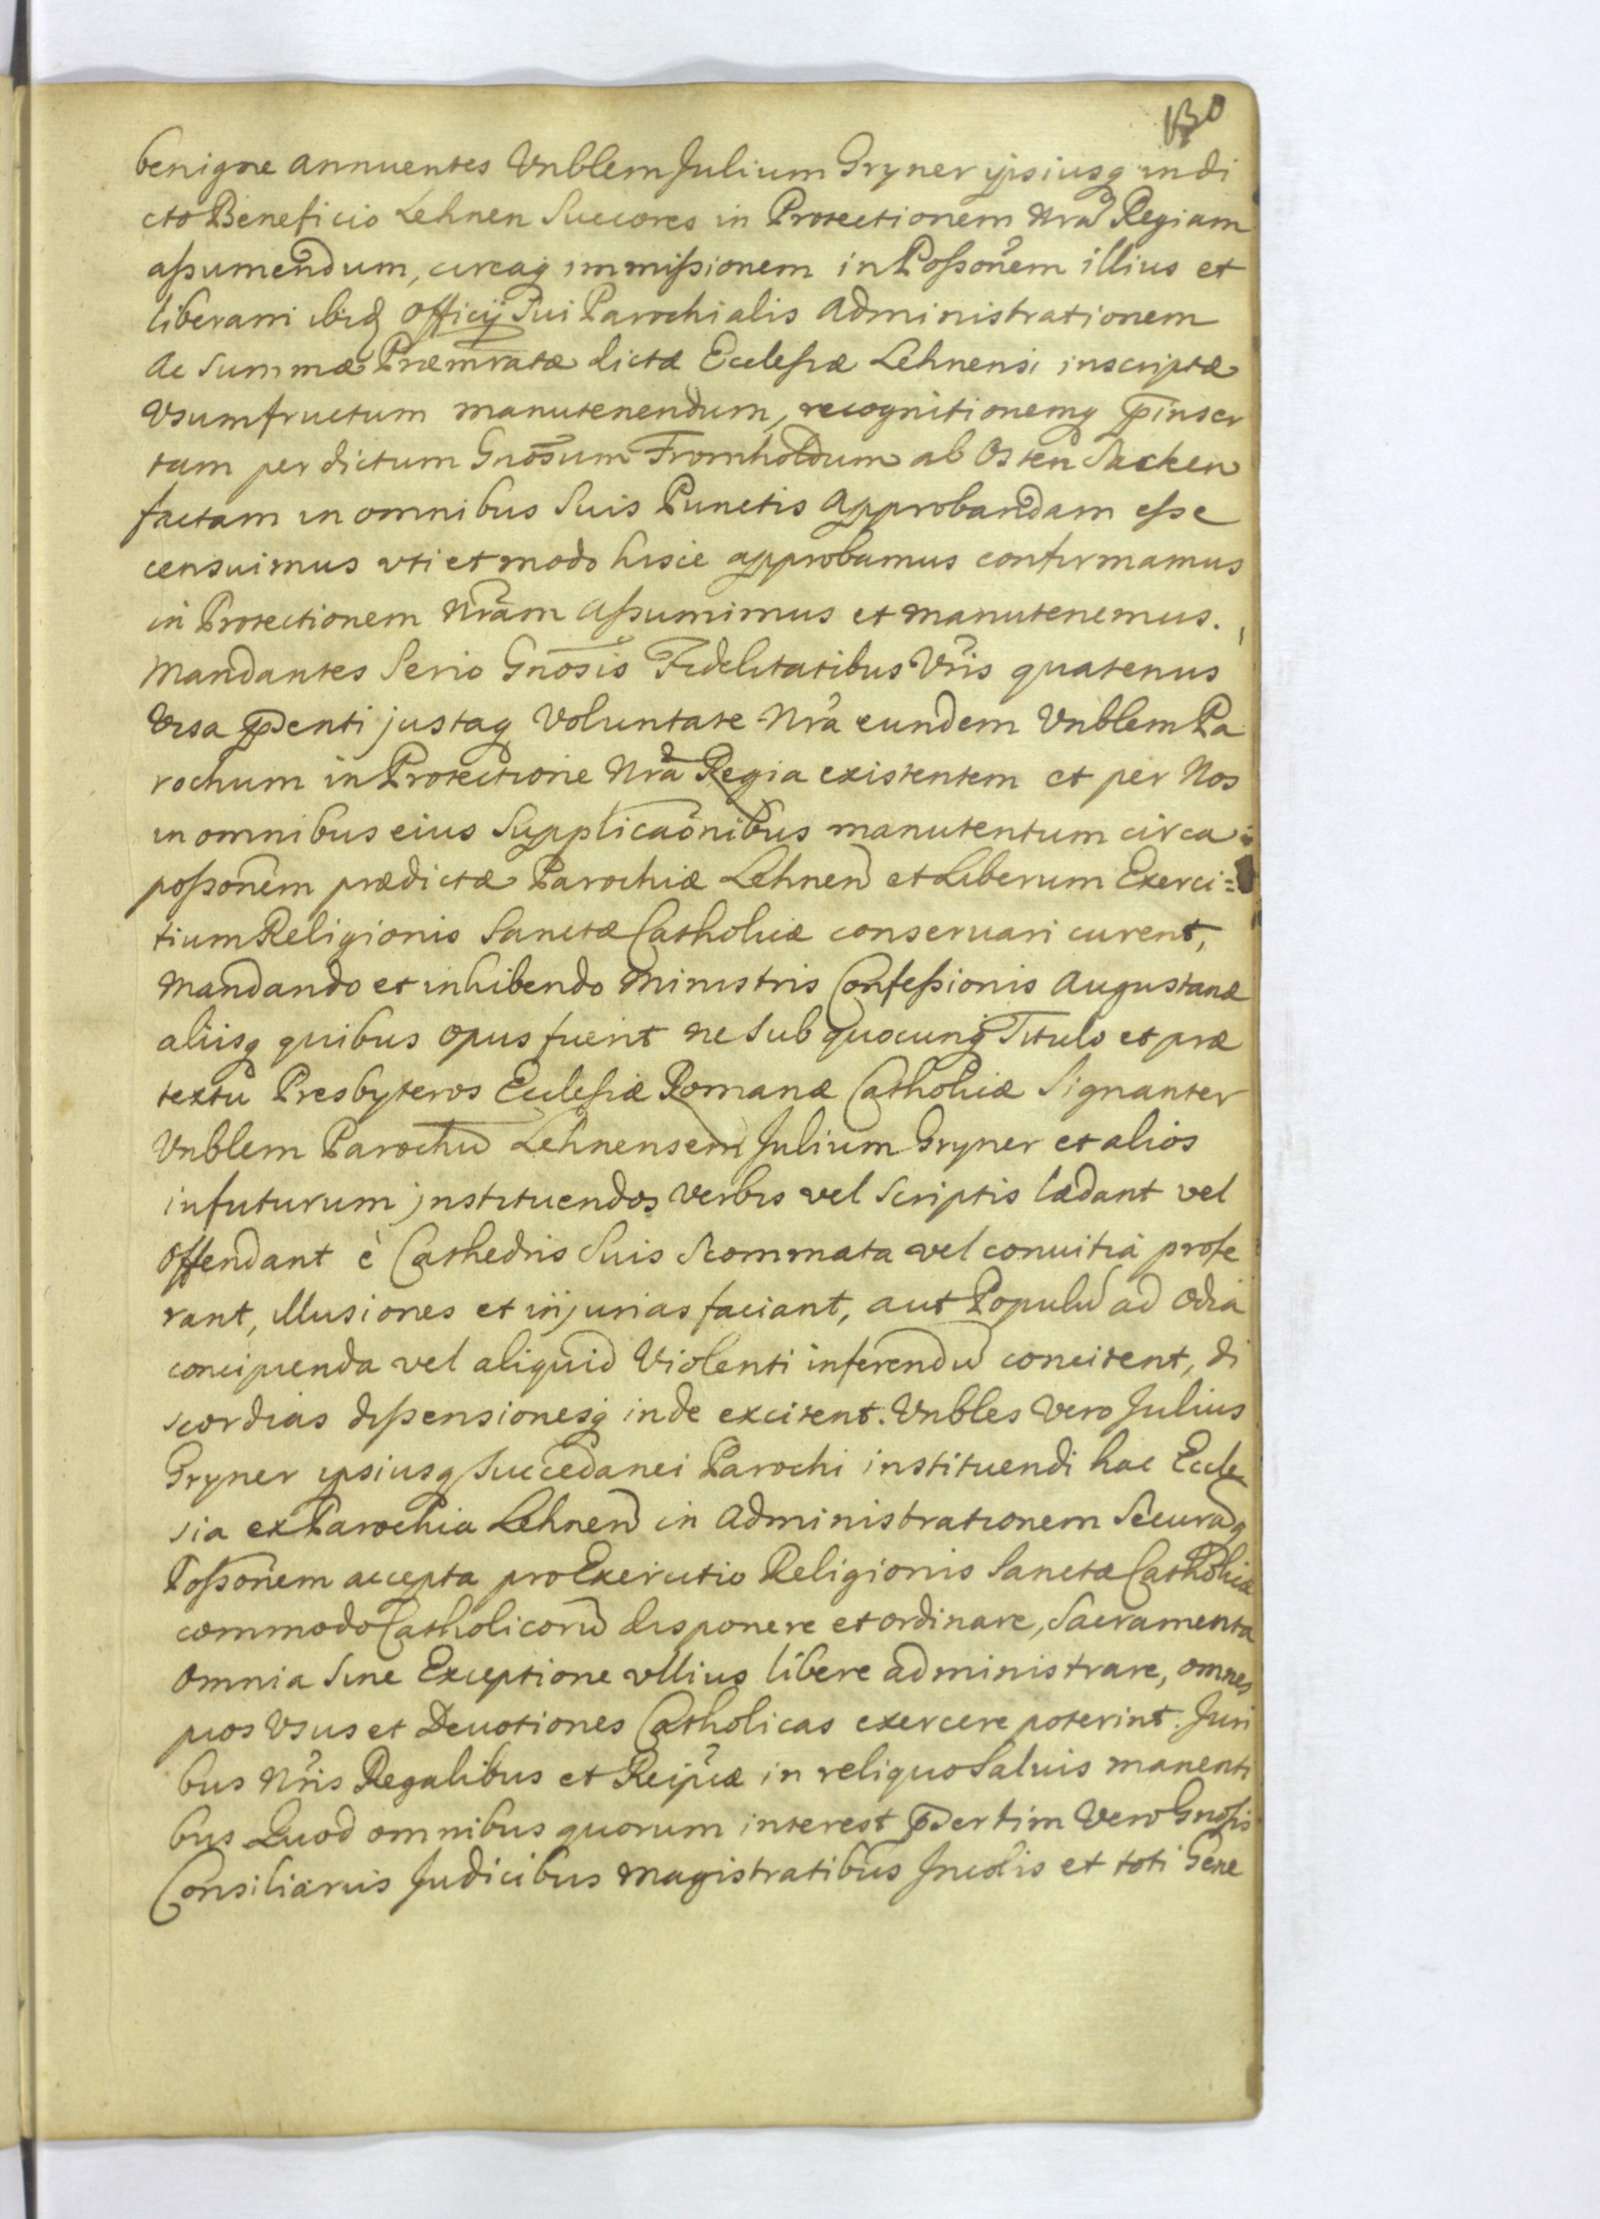 130
benigne annuentes Vnblem Julium Gryner ipsiusq in di
cto Beneficio Lehnen Succores in Protectionem Nrã Regiam
aßumendum, circaq immißionem in Poßonẽm illius et
liberam ibid Officij Sui Parochialis administrationem
ac Summæ Præmratæ dictæ Ecclesiæ Lehnensi inscriptæ
Vsumfructum manutenendum, recognitionemq p̃inser
tam per dictum Gnõsum Fromholdum ab Osten Sacken
factam in omnibus Suis Punctis approbandam eße
censuimus vti et modo hisce approbamus confirmamus
in Protectionem Nrãm aßumimus et manutenemus.
Mandantes Serio Gnõsis Fidelitatibus Vr̃is quatenus
Visa p̃senti justaq Voluntate Nrã eundem Vnblem Pa
rochum in Protectione Nrã Regia existentem et per Nos
in omnibus eius Supplicaõnibus manutentum circa
poßonẽm prædictæ Parochiæ Lehnen et Liberum Exerci=
tium Religionis Sanctæ Catholicæ conseruari curent,
Mandando et inhibendo Ministris Confeßionis Augustanæ
aliisq quibus opus fuerit ne Sub quocunq Titulo et præ
textu Presbyteros Ecclesiæ Romanæ Catholicæ Signanter
Vnblem Parochũ Lehnensem Julium Gryner et alios
infuturum jnstituendos verbis vel Scriptis lædant vel
Offendant è Cathedris Suis Scommata vel conuitia profe
rant, illusiones et injurias faciant, aut Populũ ad Odia
concipienda vel aliquid Violenti inferendũ concitent, di
scordias dißensionesq inde excitent. Vnbles Vero Julius
Gryner ipsiusq Succedanei Parochi instituendi hac Eccle
sia ex Parochia Lehnen in administrationem Securãq
Poßonẽm accepta pro Exercitio Religionis Sanctæ Catholicæ
commodo Catholicorũ disponere et ordinare, Sacramenta
Omnia Sine Exceptione vllius libere administrare, omnes
pios Vsus et Deuotiones Catholicas exercere poterint. Juri
bus Nr̃is Regalibus et Reipũcæ in reliquo Saluis manenti
bus Quod omnibus quorum interest p̃sertim Vero Gnosis
Consiliariis Judicibus Magistratibus Jncolis et toti Gene